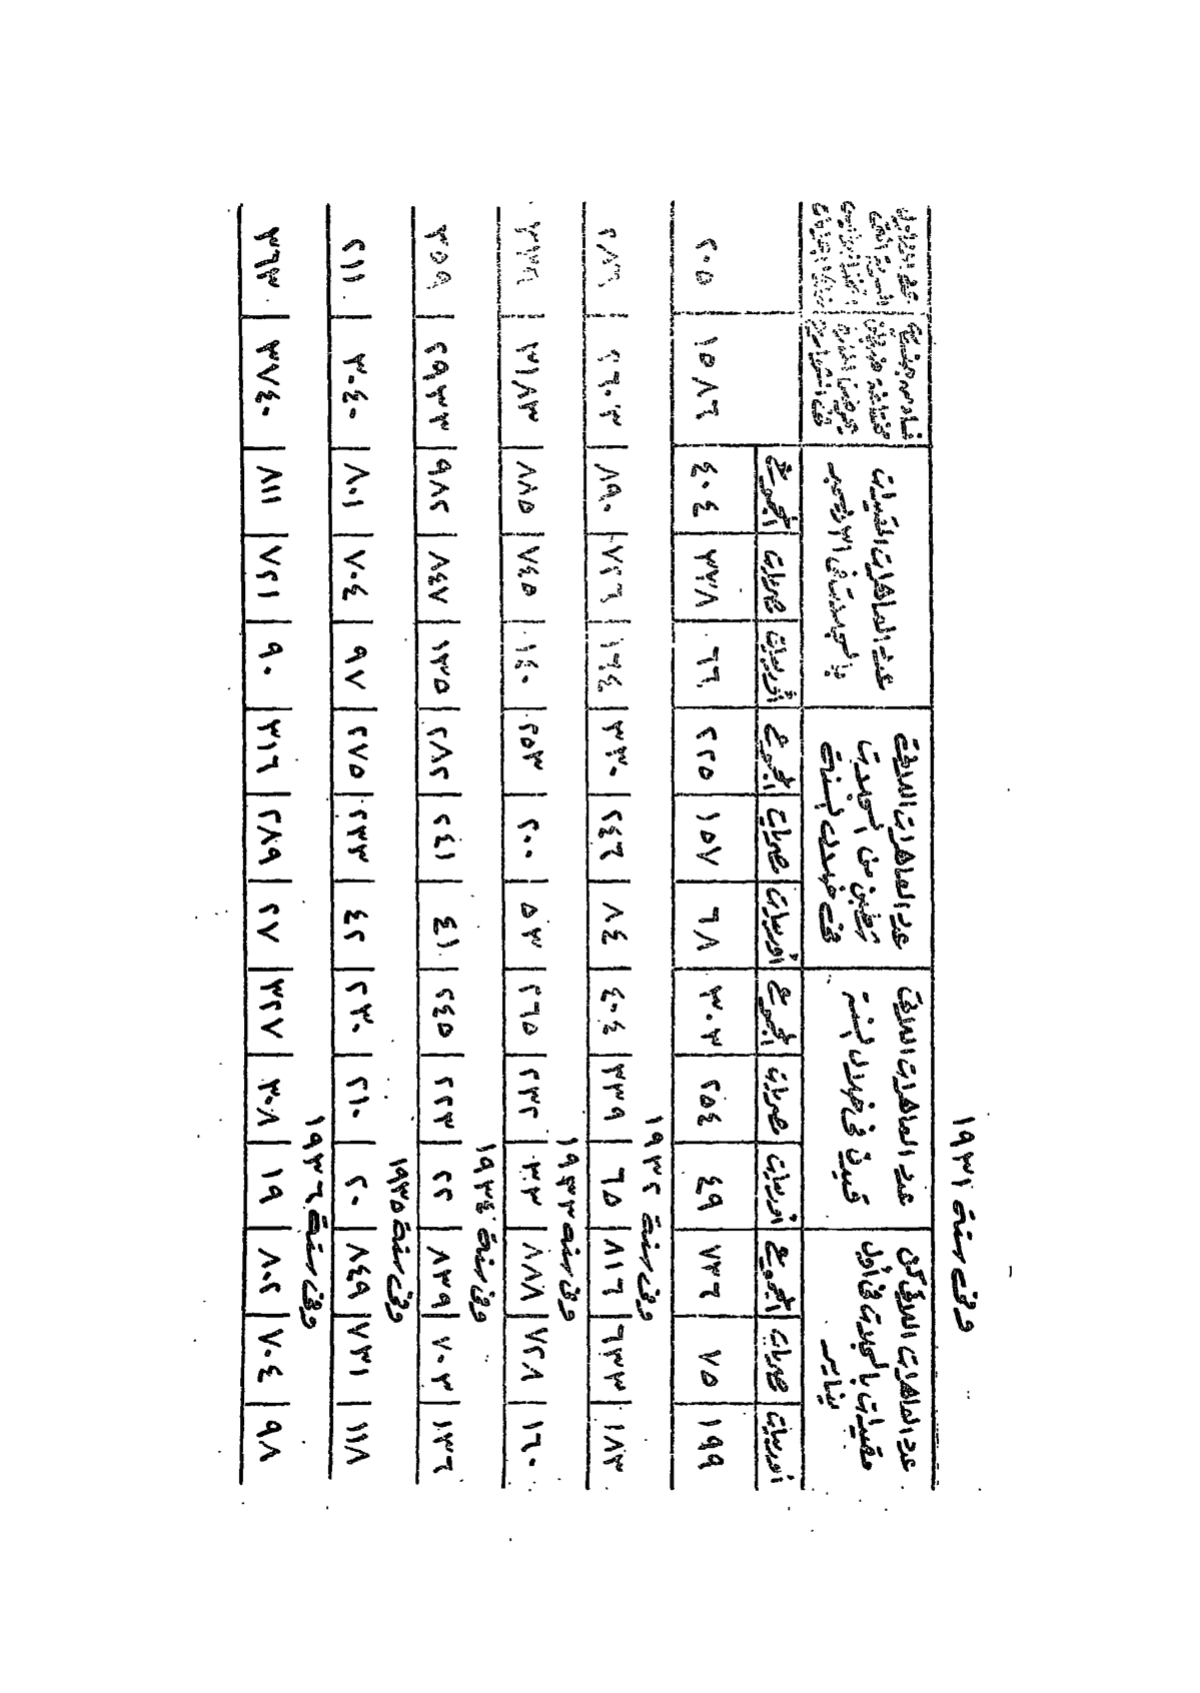 وفى سنة ١٩٣١
عدد العاهرات اللاتى كن مقيدات بالسجلات فى أول يناير
عدد العاهرات اللاتى قيدن فى خلال السنة
عدد العاهرات اللاتى شطبن من السجلات فى خلال السنة
عدد العاهرات المقيدات بالسجلات فى ٣١ ديسمبر
أوربيات مصريات المجموع أوربيات مصريات المجموع أوربيات مصريات المجموع أوربيات مصريات المجموع
١٩٩ ٧٥ ٧٣٦ ٤٩ ٢٥٤ ٣٠٣ ٦٨ ١٥٧ ٢٢٥ ٦٦ ٣٣٨ ٤٠٤ ١٥٨٦ ٢٠٥
وفى سنة ١٩٣٢
١٨٣ ٦٣٣ ٨١٦ ٦٥ ٣٣٩ ٤٠٤ ٨٤ ٢٤٦ ٣٣٠ ١٦٤ ٧٢٦ ٨٩٠ ٢٦٠٣ ٢٨٦
وفى سنة ١٩٣٣
١٦٠ ٧٢٨ ٨٨٨ ٣٣ ٢٣٢ ٢٦٥ ٥٣ ٢٠٠ ٢٥٣ ١٤٠ ٧٤٥ ٨٨٥ ٣١٨٣
وفى سنة ١٩٣٤
١٣٦ ٧٠٣ ٨٣٩ ٢٢ ٢٢٣ ٢٤٥ ٤١ ٢٤١ ٢٨٢ ١٣٥ ٨٤٧ ٩٨٢ ٢٩٣٣ ٣٥٩
وفى سنة ١٩٣٥
١١٨ ٧٣١ ٨٤٩ ٢٠ ٢١٠ ٢٣٠ ٤٢ ٢٣٣ ٢٧٥ ٩٧ ٧٠٤ ٨٠١ ٣٠٤٠ ٢١١
وفى سنة ١٩٣٦
٩٨ ٧٠٤ ٨٠٢ ١٩ ٣٠٨ ٣٢٧ ٢٧ ٢٨٩ ٣١٦ ٩٠ ٧٢١ ٨١١ ٣٧٤٠ ٣٦٣